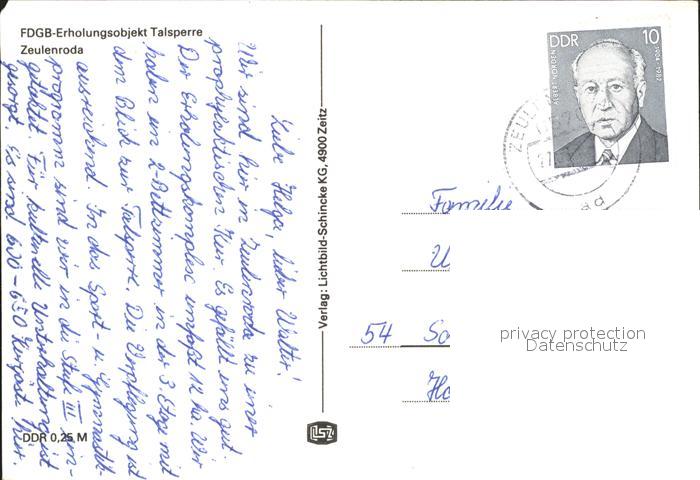 FDGB-Erholungsobjekt Talsperre
Zeulenroda
Liebe Helga, lieber Walter!
Wir sind hier in Zeulenroda zu einer
prophylaktischen Kur. Es gefällt uns gut.
Der Erholungskomplex umfaßt 12 ha. Wir
haben ein 2-Bettzimmer in der 3. Etage mit
dem Blick zur Talsperre. Die Verpflegung ist
ausreichend. In das Sport- u. Gymnastik-
programm sind wir in die Stufe III ein-
getaktet. Für kulturelle Unterhaltung ist
gesorgt. Es sind 620-650 Kurgäste hier.
DDR 0,25 M
Verlag: Lichtbild-Schincke KG, 4900 Zeitz
DDR 10
ALBERT NORDEN
1904-1982
Familie
U
54 So
Ho
privacy protection
Datenschutz